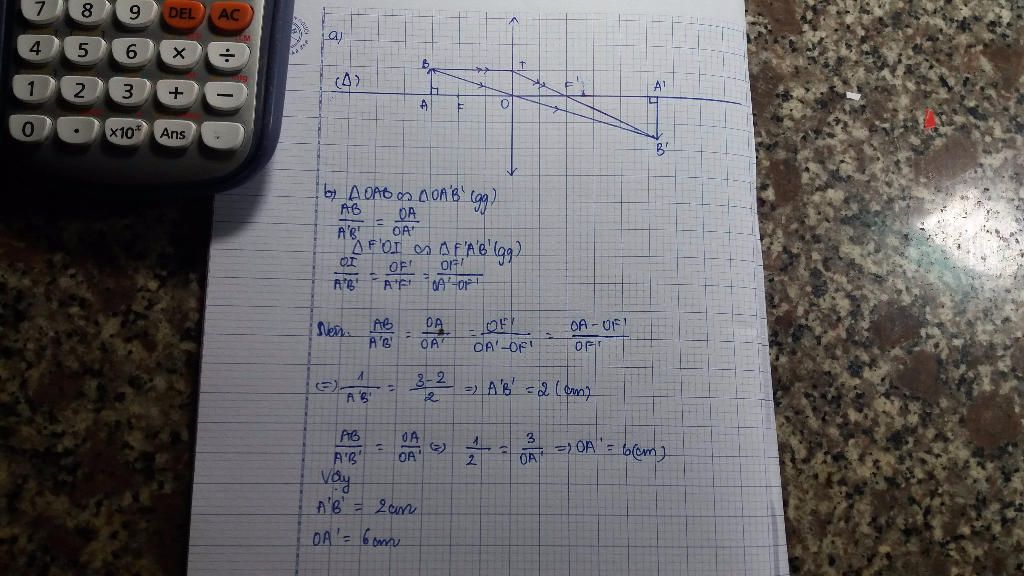 7 8 9 DEL AC
4 5 6 × ÷
1 2 3 + −
0 . ×10ˣ Ans
a)
B I F' A'
(Δ) A F O
B'
b) Δ OAB ∽ Δ OA'B' (gg)
AB/A'B' = OA/OA'
Δ F'OI ∽ Δ F'A'B' (gg)
OI/A'B' = OF'/A'F' = OF'/OA'-OF'
Nên: AB/A'B' = OA/OA' = OF'/OA'-OF' = OA-OF'/OF'
(=) 1/A'B' = 3-2/2 => A'B' = 2 (cm)
AB/A'B' = OA/OA' (=) 1/2 = 3/OA' => OA' = 6(cm)
Vậy
A'B' = 2cm
OA' = 6cm